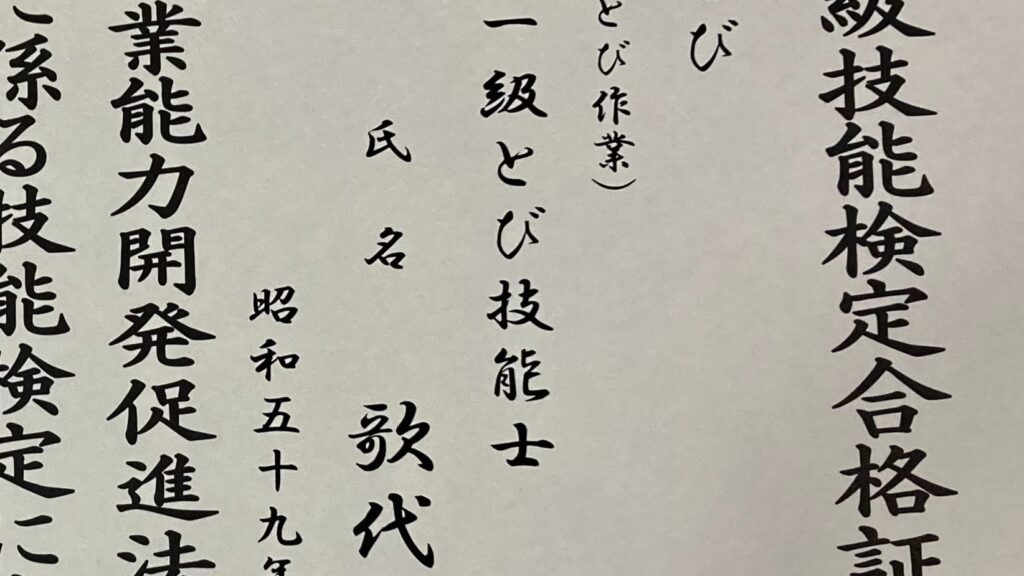 級技能検定合格証
び
とび作業)
一級とび技能士
氏名 歌代
昭和五十九年
業能力開発促進法
に係る技能検定に